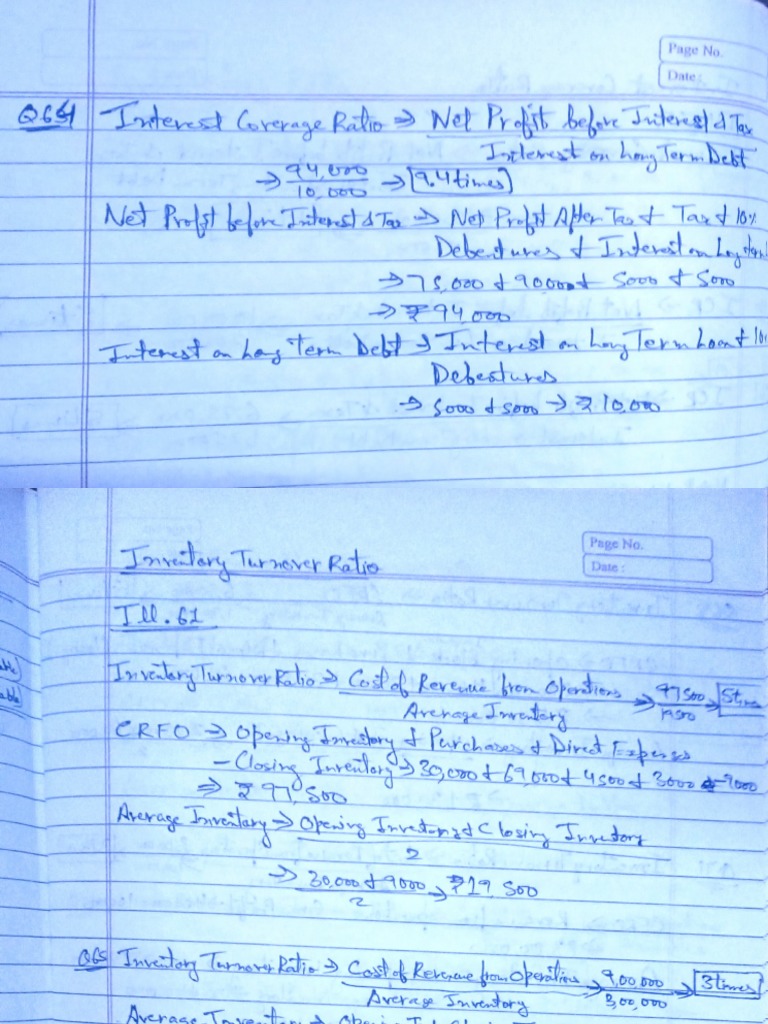 Page No.
Date:
Q64 Interest Coverage Ratio → Net Profit before Interest & Tax
Interest on Long Term Debt
→ 94,000 → 9.4 times
10,000
Net Profit before Interest & Tax → Net Profit After Tax + Tax + 10%
Debentures + Interest on Long term
→ 75,000 + 9000 + 5000 + 5000
→ ₹ 94,000
Interest on Long Term Debt → Interest on Long Term Loan + 10%
Debentures
→ 5000 + 5000 → ₹ 10,000
Page No.
Date:
Inventory Turnover Ratio
Ill. 61
Inventory Turnover Ratio → Cost of Revenue from Operations → 97500 → 5 times
Average Inventory 19500
CRFO → Opening Inventory + Purchases + Direct Expenses
- Closing Inventory → 30,000 + 69,000 + 4500 + 3000 - 9000
→ ₹ 97,500
Average Inventory → Opening Inventory + Closing Inventory
2
→ 30,000 + 9000 → ₹ 19,500
2
Q65 Inventory Turnover Ratio → Cost of Revenue from Operations → 9,00,000 → 3 times
Average Inventory 3,00,000
Average Inventory → Opening